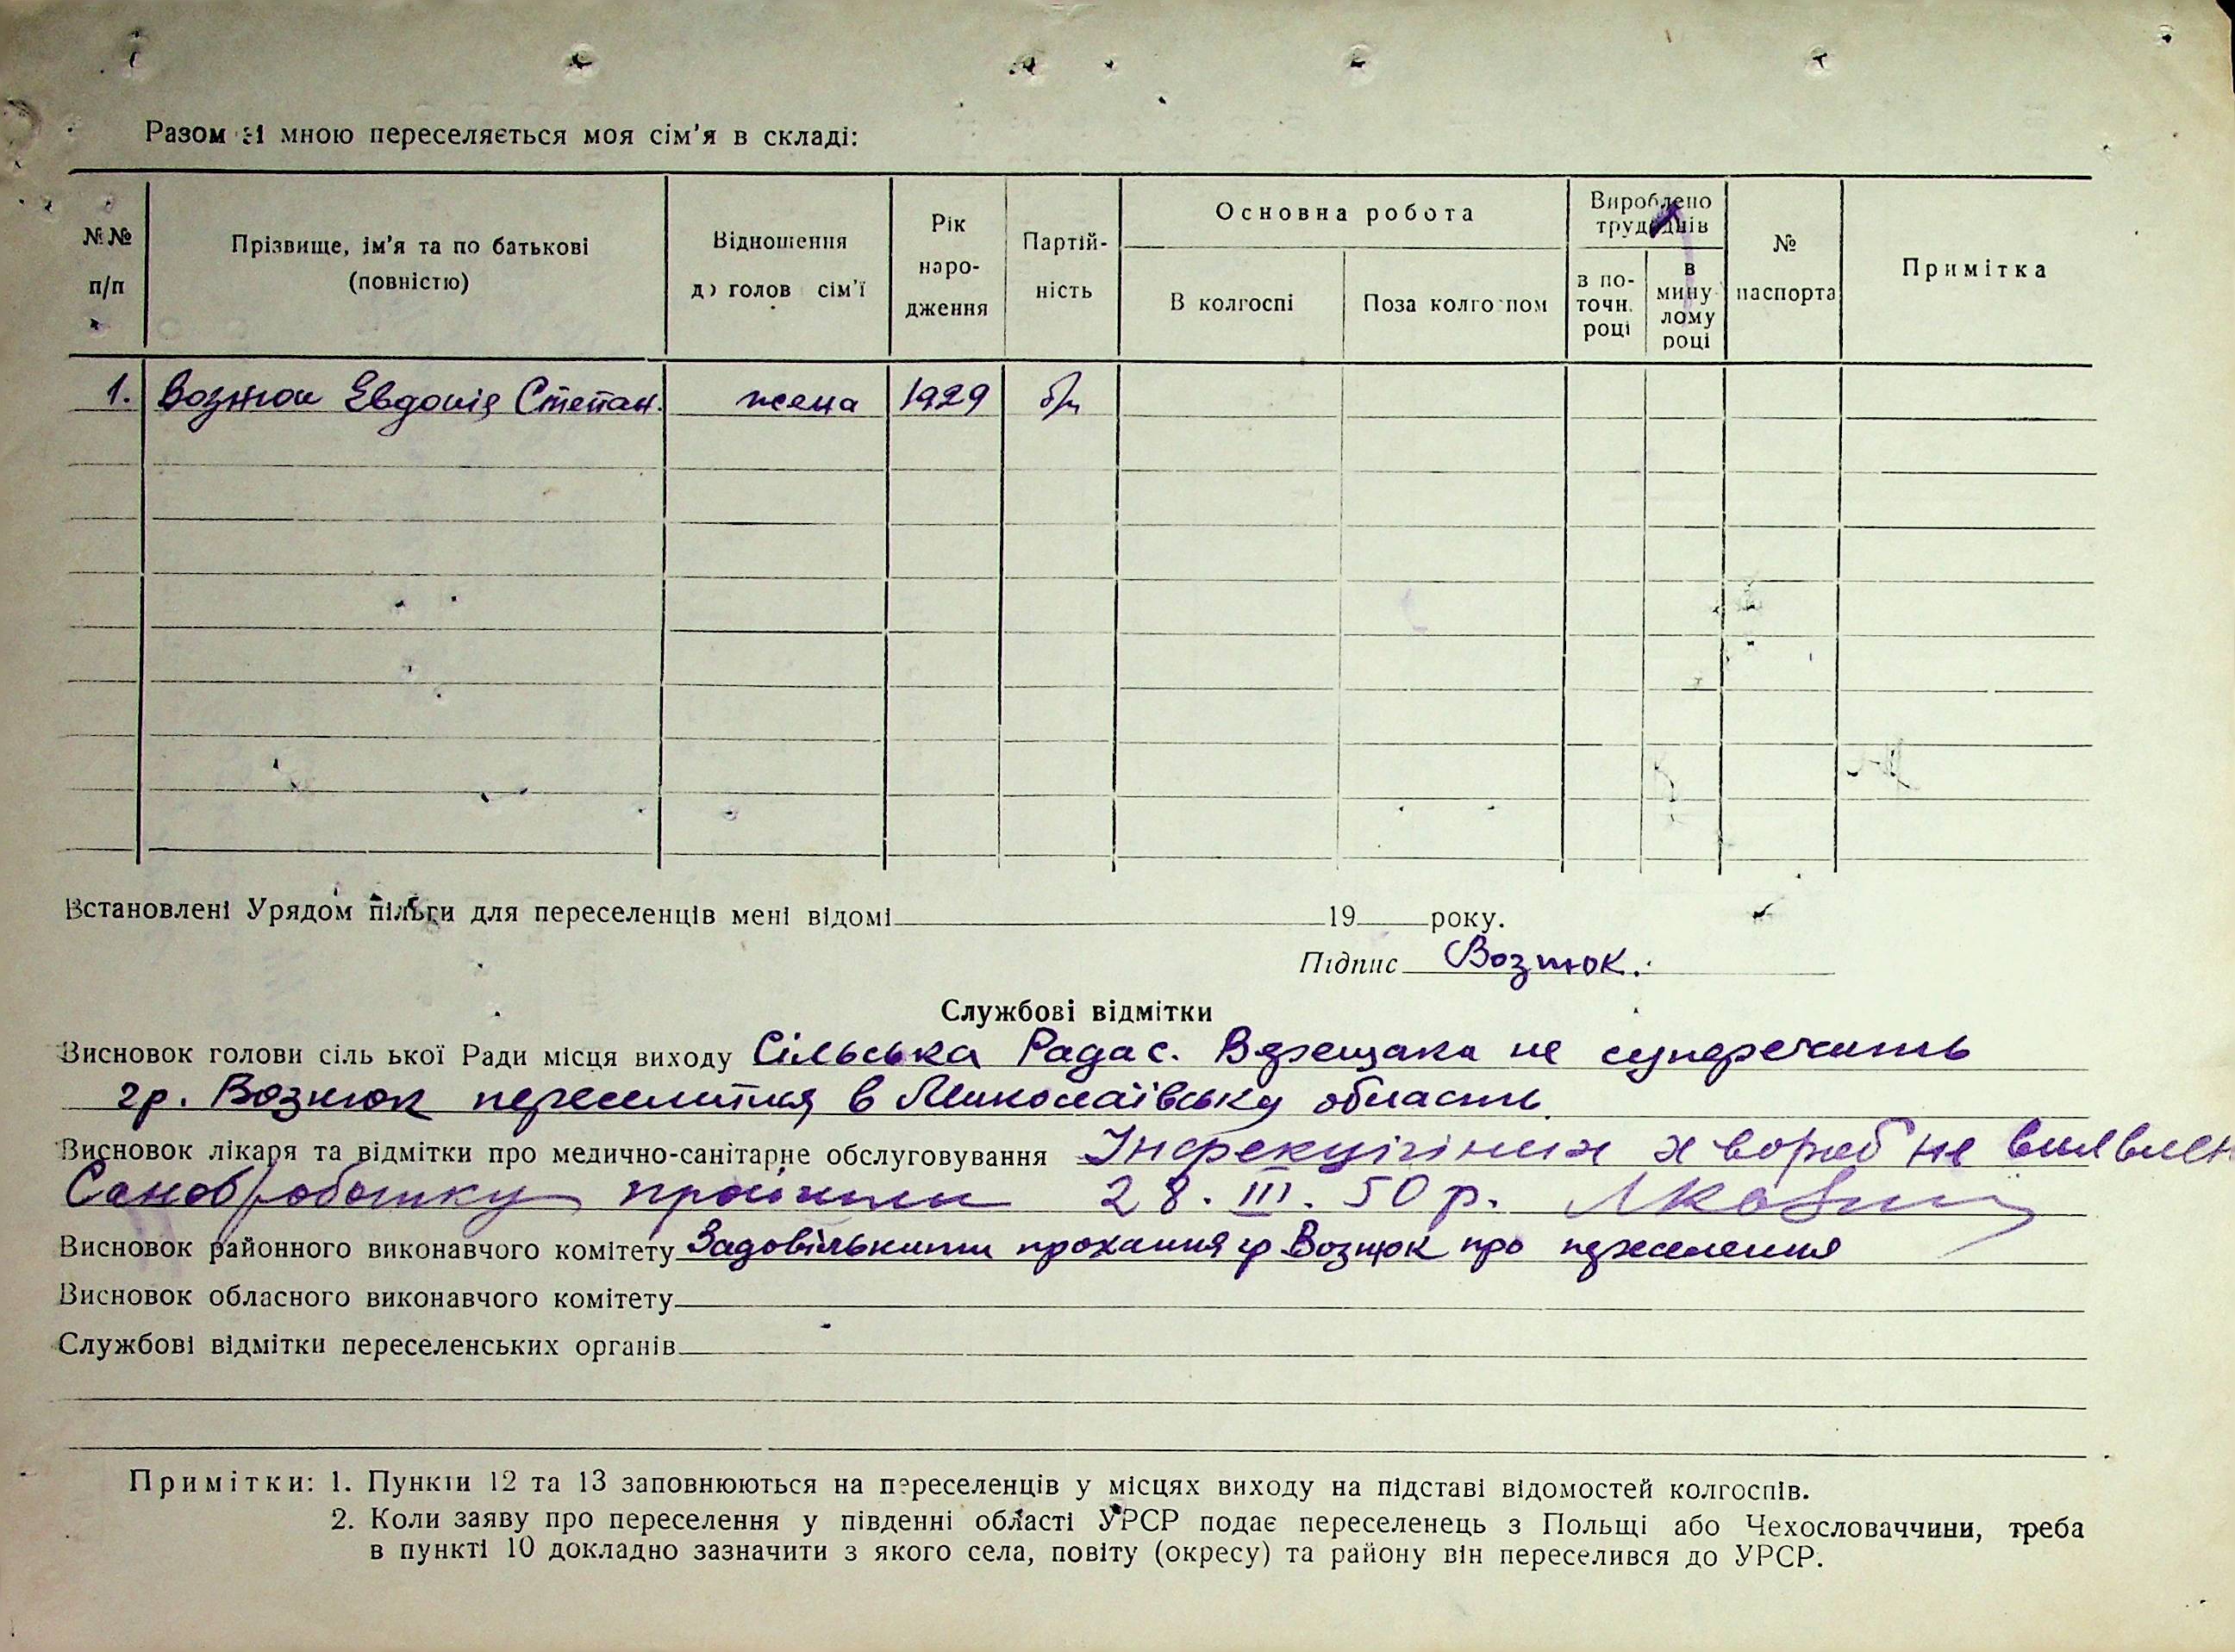 Разом зі мною переселяється моя сім'я в складі:
№№ п/п
Прізвище, ім'я та по батькові (повністю)
Відношення до голов сім'ї
Рік народження
Партійність
Основна робота
В колгоспі
Поза колгоспом
Вироблено трудоднів
в по-точн. році
в мину-лому році
№ паспорта
Примітка
1. Вознюк Евдокія Степан. жена 1929 б/п
Встановлені Урядом пільги для переселенців мені відомі 19 року.
Підпис Вознюк.
Службові відмітки
Висновок голови сільської Ради місця виходу Сільська Рада с. Верещака не суперечить
гр. Вознюк переселитися в Миколаївську область.
Висновок лікаря та відмітки про медично-санітарне обслуговування Інфекційних хвороб не виявлен
Санобработку пройшли 28. III. 50 р.
Висновок районного виконавчого комітету Задовільнити прохання гр Вознюк про переселення
Висновок обласного виконавчого комітету
Службові відмітки переселенських органів
Примітки: 1. Пункти 12 та 13 заповнюються на переселенців у місцях виходу на підставі відомостей колгоспів.
2. Коли заяву про переселення у південні області УРСР подає переселенець з Польщі або Чехословаччини, треба
в пункті 10 докладно зазначити з якого села, повіту (окресу) та району він переселився до УРСР.